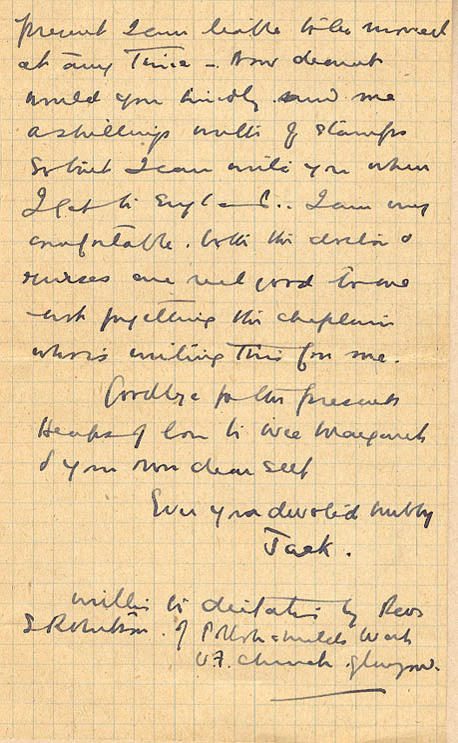 present I am liable to be moved
at any time – Now dearest
would you kindly send me
a shillings worth of stamps
so that I can write you when
I get to England.. I am very
comfortable. both the doctor &
nurses are real good to me
not forgetting the chaplain
who is writing this for me.
Goodbye for the present
Heaps of love to wee Margaret
& your own dear self
Ever your devoted hubby
Jack.
written to dictation by Revd
S Robertson. of Pollokshields West
U.F. church. Glasgow.